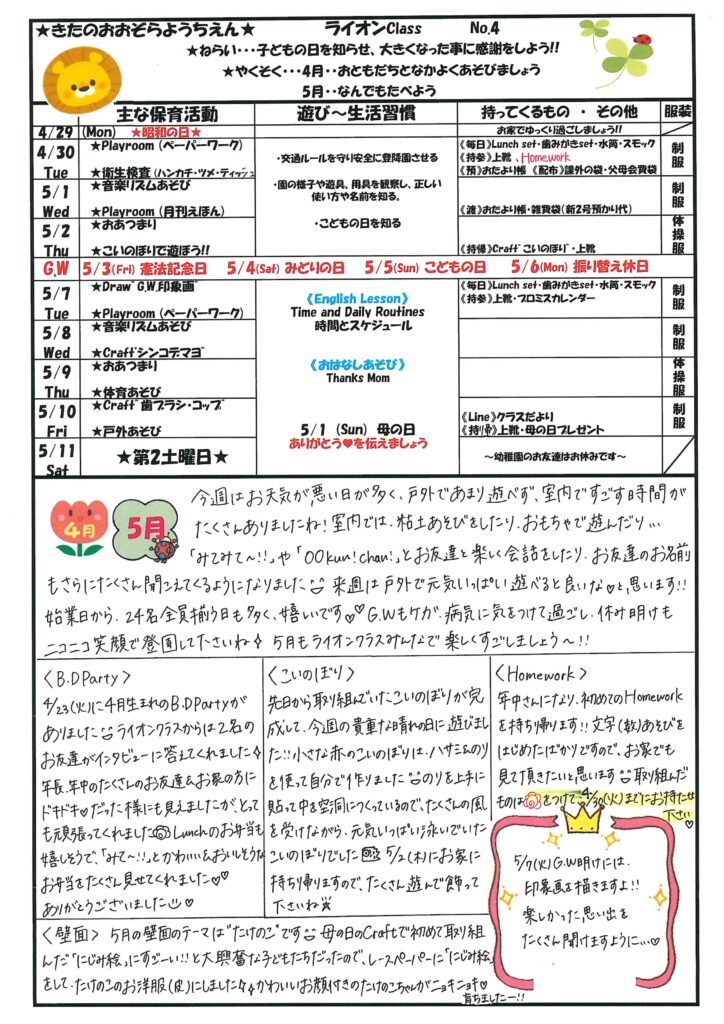 ★きたのおおぞらようちえん★ ライオンClass No.4
★ねらい・・・子どもの日を知らせ、大きくなった事に感謝をしよう!!
★やくそく・・・4月・・おともだちとなかよくあそびましょう
5月・・なんでもたべよう
主な保育活動 遊び〜生活習慣 持ってくるもの ・ その他 服装
4/29 (Mon) ★昭和の日★ お家でゆっくり過ごしましょう!!
4/30 Tue ★Playroom (ペーパーワーク)
★衛生検査 (ハンカチ・ツメ・ティッシュ
・交通ルールを守り安全に登降園させる
《毎日》Lunch set・歯みがきset・水筒・スモック
《持参》上靴、Homework
《預》おたより帳 《配布》課外の袋・父母会費袋
制服
5/1 Wed ★音楽リズムあそび
★Playroom (月刊えほん)
・園の様子や遊具、用具を観察し、正しい
使い方や名前を知る。
《渡》おたより帳・雑費袋(新2号預かり代)
制服
5/2 Thu ★おあつまり
★こいのぼりで遊ぼう!!
・こどもの日を知る
《持帰》Craft゛こいのぼり゛・上靴
体操服
G.W 5/3(Fri) 憲法記念日 5/4(Sat) みどりの日 5/5(Sun) こどもの日 5/6(Mon) 振り替え休日
5/7 Tue ★Draw゛G.W.印象画゛
★Playroom (ペーパーワーク)
《English Lesson》
Time and Daily Routines
時間とスケジュール
《毎日》Lunch set・歯みがきset・水筒・スモック
《持参》上靴・プロミスカレンダー
制服
5/8 Wed ★音楽リズムあそび
★Craft゛シンコデマヨ゛
制服
5/9 Thu ★おあつまり
★体育あそび
《おはなしあそび》
Thanks Mom
体操服
5/10 Fri ★Craft゛歯ブラシ・コップ゛
★戸外あそび
5/1 (Sun) 母の日
ありがとう♥を伝えましょう
《Line》クラスだより
《持帰》上靴・母の日プレゼント
制服
5/11 Sat ★第2土曜日★ 〜幼稚園のお友達はお休みです〜
4月 5月
今週はお天気が悪い日が多く、戸外であまり遊べず、室内ですごす時間が
たくさんありましたね!室内では、粘土あそびをしたり、おもちゃで遊んだり…
「みてみて〜!!」や「〇〇kun!chan!」とお友達と楽しく会話をしたり、お友達のお名前
もさらにたくさん聞こえてくるようになりました 来週は戸外で元気いっぱい遊べると良いな♡と思います!!
始業日から、24名全員揃う日も多く、嬉しいです♡♡ G.Wもケガ、病気に気をつけて過ごし、休み明けも
ニコニコ笑顔で登園して下さいね 5月もライオンクラスみんなで楽しくすごしましょう〜!!
〈B.D Party〉
4/23(火)に4月生まれのB.D Partyが
ありました ライオンクラスからは2名の
お友達がインタビューに答えてくれました
年長、年中のたくさんのお友達&お家の方に
ドキドキ♡だった様にも見えましたが、とって
も頑張ってくれました Lunchのお弁当も
嬉しそうで、「みて〜!!」とかわいい&おいしそうな
お弁当をたくさん見せてくれました♡♡
ありがとうございました
〈こいのぼり〉
先日から取り組んでいたこいのぼりが完
成して、今週の貴重な晴れの日に遊びまし
た!!小さな赤のこいのぼりは、ハサミ&のり
を使って自分で作りました のりを上手に
貼って中を空洞につくっているので、たくさんの風
を受けながら、元気いっぱい泳いでいた
こいのぼりでした 5/2(木)にお家に
持ち帰りますので、たくさん遊んで飾って
下さいね
〈Homework〉
年中さんになり、初めてのHomework
を持ち帰ります!!文字(数)あそびを
はじめたばかりですので、お家でも
見て頂きたいと思います 取り組んだ
ものは をつけて、4/30(火)までにお持たせ
下さい♡
5/7(火)G.W明けには、
印象画を描きますよ!!
楽しかった思い出を
たくさん聞けますように…♡
〈壁面〉 5月の壁面のテーマは"たけのこ"です 母の日のCraftで初めて取り組
んだ「にじみ絵」にすごーい!!と大興奮な子どもたちだったので、レースペーパーに「にじみ絵」
をして、たけのこのお洋服(皮)にしました かわいいお顔付きのたけのこちゃんがニョキニョキ
育ちましたー!!